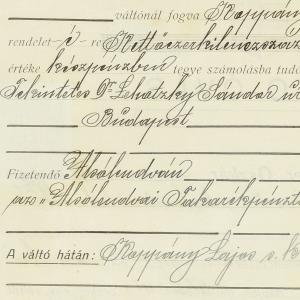 váltónál fogva Koppány
rendelet é re Kettőezerkilenczszáz
értéke készpénzben tegye számolásba tudó
Tekintetes Dr Lchatzky Sándor ur
Budapest
Fizetendő Alsólendván
az „Alsólendvai Takarékpénzt
A váltó hátán: Koppány Lajos s. k